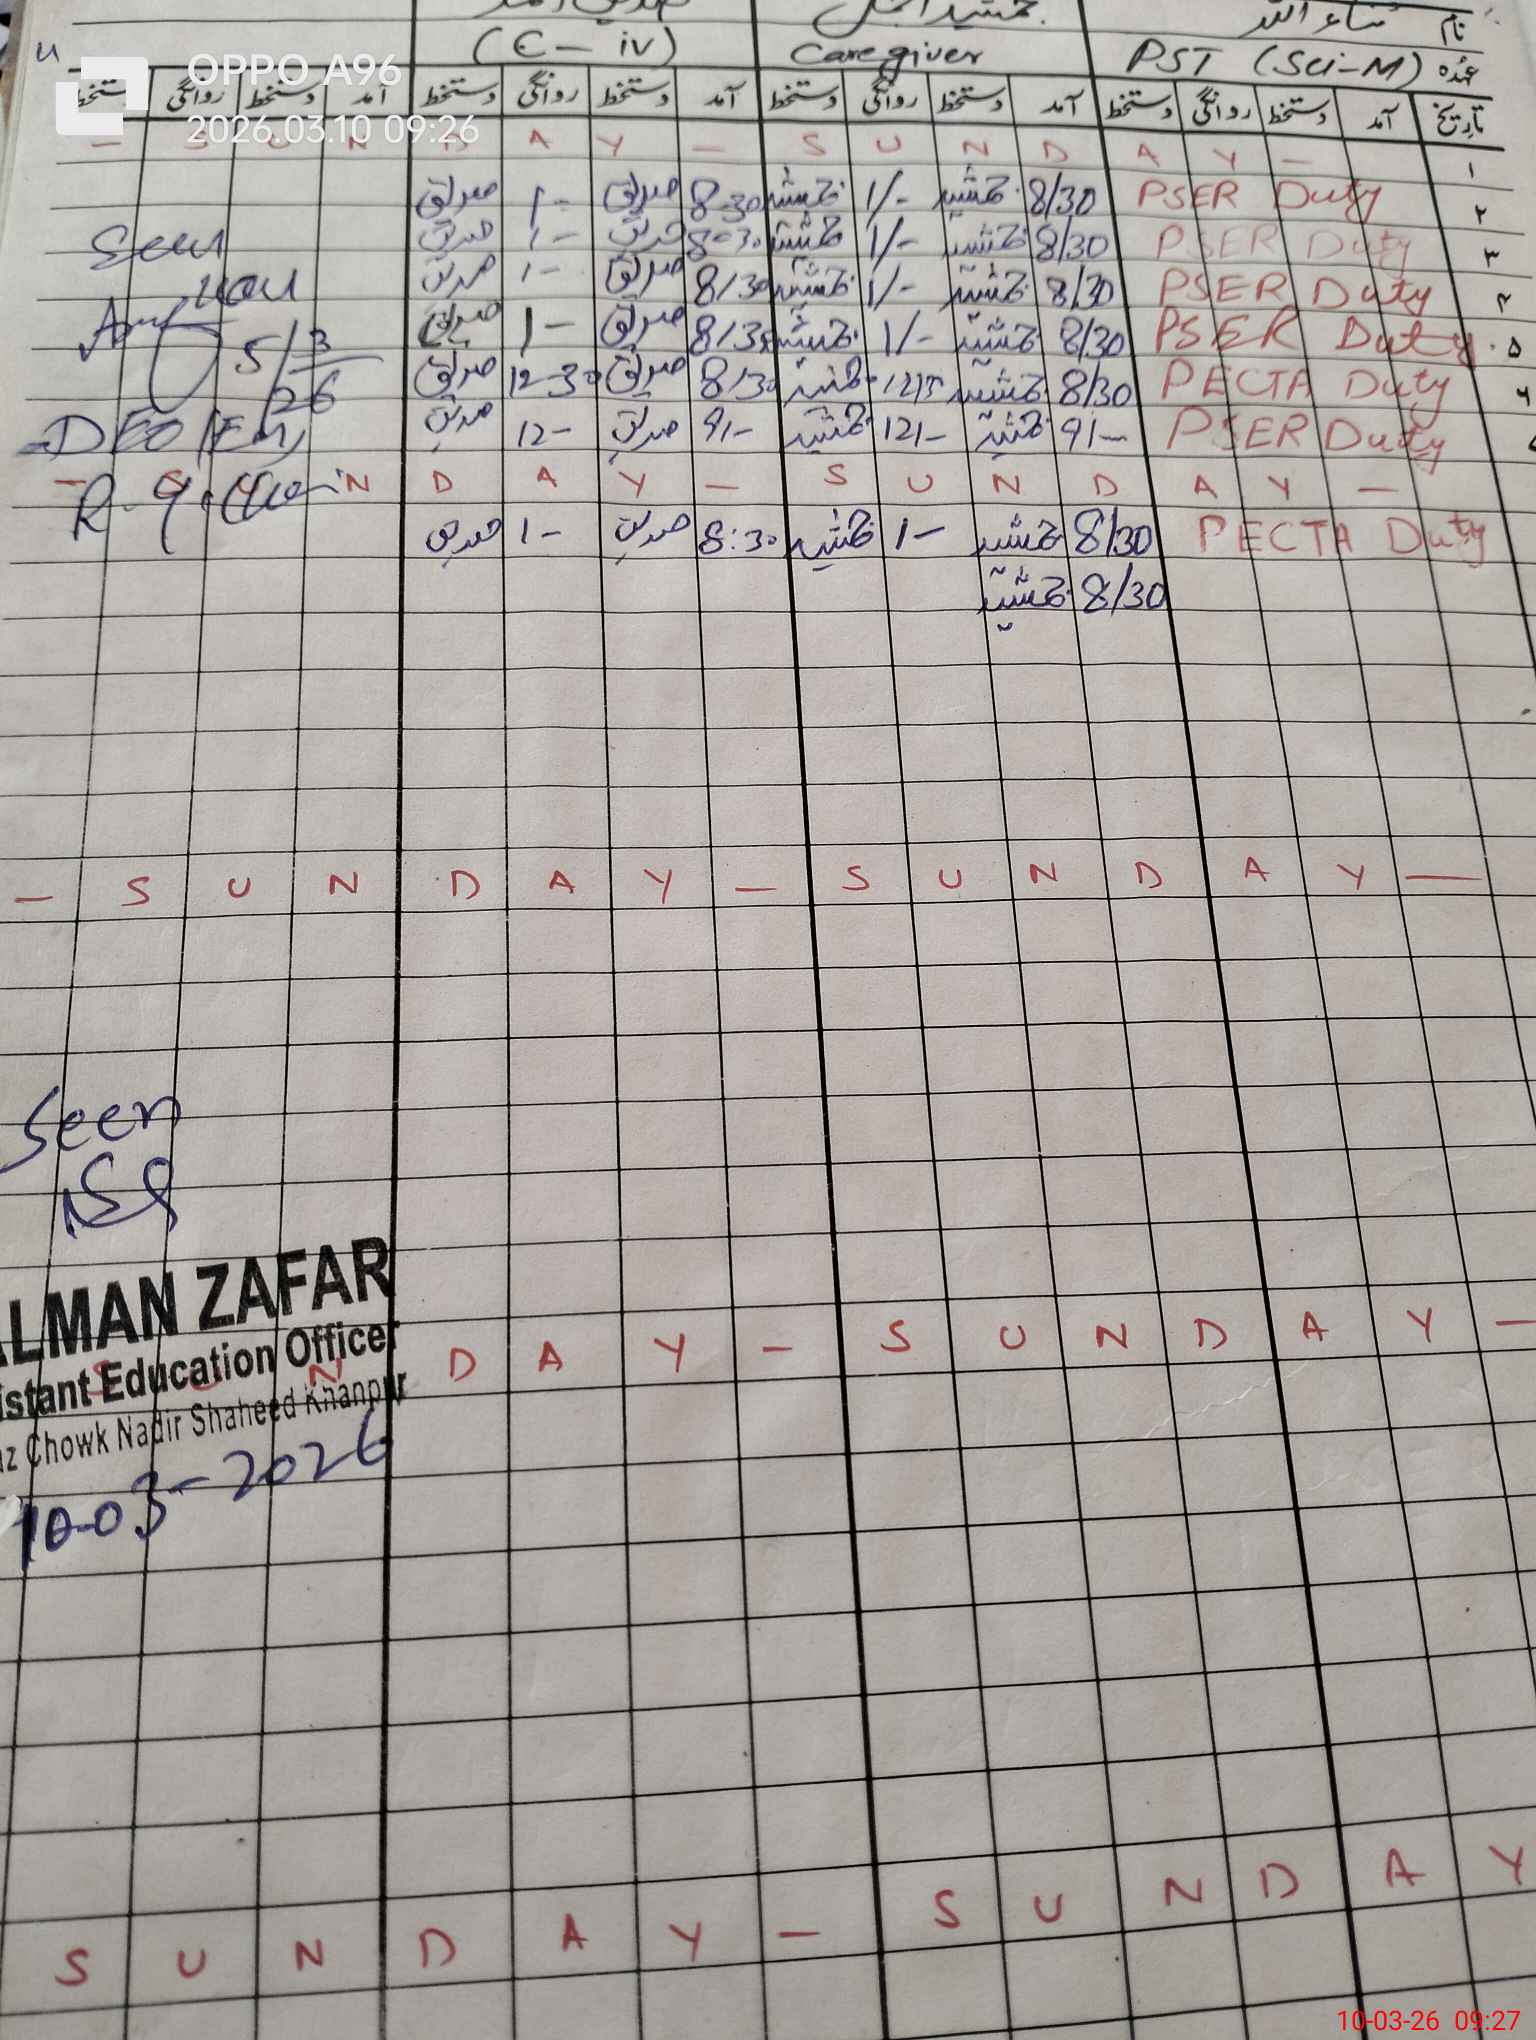 نام ثناء اللہ جمشید اجمل صدیق احمد
عہدہ PST (Sci-M) Caregiver (C-iv)
تاریخ آمد دستخط روانگی دستخط آمد دستخط روانگی دستخط آمد دستخط روانگی دستخط آمد دستخط روانگی دستخط
OPPO A96
2026.03.10 09:26
۱ - S U N D A Y - S U N D A Y -
۲ PSER Duty 8/30 جمشید 1/- جمشید 8-30 صدیق 1- صدیق
۳ PSER Duty 8/30 جمشید 1/- جمشید 8-30 صدیق 1- صدیق
۴ PSER Duty 8/30 جمشید 1/- جمشید 8/30 صدیق 1- صدیق
۵ PSER Duty 8/30 جمشید 1/- جمشید 8/30 صدیق 1- صدیق
۶ PECTA Duty 8/30 جمشید 12/15 جمشید 8/30 صدیق 12-30 صدیق
PSER Duty 9/- جمشید 12/- جمشید 9/- صدیق 12- صدیق
- N D A Y - S U N D A Y -
PECTA Duty 8/30 جمشید 1- جمشید 8:30 صدیق 1- صدیق
8/30 جمشید
Seen
5/3
26
DEO (EM)
R.Y.Khan
- S U N D A Y - S U N D A Y -
Seen
ALMAN ZAFAR
istant Education Officer
S U N D A Y - S U N D A Y -
az Chowk Nadir Shaheed Khanpur
10-03-2026
S U N D A Y - S U N D A Y
10-03-26 09:27